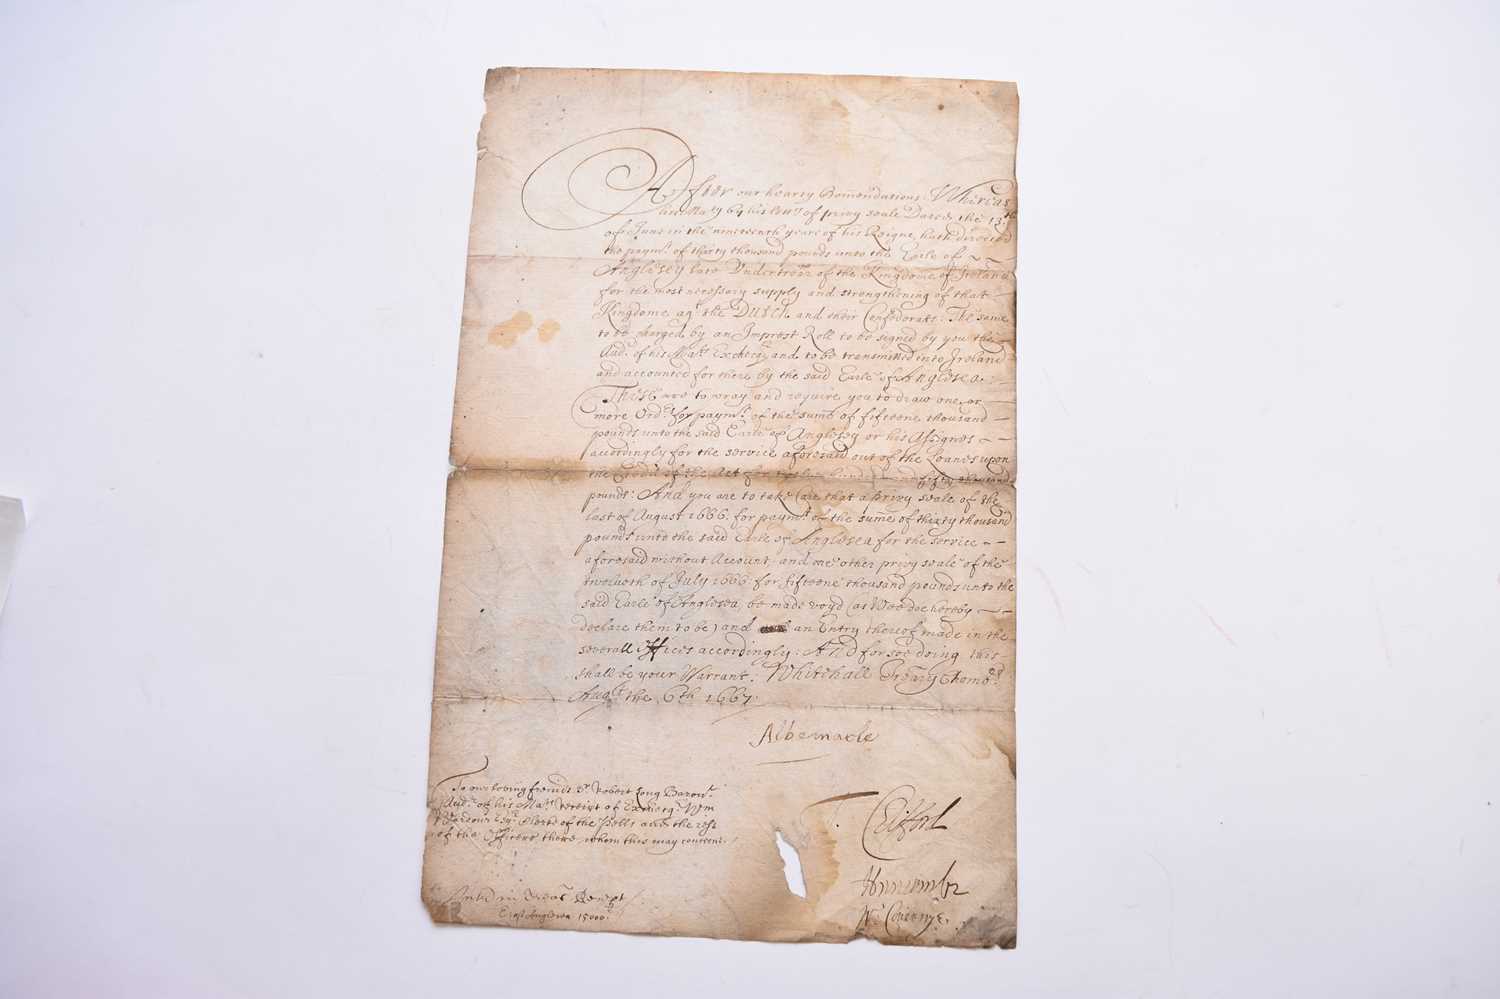 After our hearty Comendations: Whereas
his Maty by his Lres of privy seale Dated the 13th
of June in the nineteenth yeare of his Reigne, hath directed
the paymt of thirty thousand pounds unto the Earle of
Anglesey late Undertrer of the Kingdome of Ireland
for the most necessary supply and strengthening of that
Kingdome agt the Dutch and their Confederats: The same
to be charged by an Imprest Roll to be signed by you the
Audr of his Mats Excheqr and to be transmitted into Ireland
and accounted for there by the said Earle of Anglesea:
These are to pray and require you to draw one or
more Ordrs for paymt of the sume of fifteene thousand
pounds unto the said Earle of Anglesey or his Assignes
accordingly for the service aforesaid out of the Loanes upon
the Credit of the Act for twelve hundred and fifty thousand
pounds: And you are to take Care that a privy seale of the
last of August 1666 for paymt of the sume of thirty thousand
pounds unto the said Earle of Anglesea for the service
aforesaid without Account, and one other privy seale of the
twelveth of July 1666 for fifteene thousand pounds unto the
said Earle of Anglesea, be made voyd (as Wee doe hereby
declare them to be) and an Entry thereof made in the
severall Offices accordingly: And for soe doing this
shall be your Warrant: Whitehall Treãry Chambrs
Augst the 6th 1667
Albemarle
T. Clifford
W: Coventrye
To our loving freinds Sr Robert Long Baront
Audr of his Mats receipt of Excheqr Wm
Wardour Esqr Clerke of the Pells and the rest
of the Officers there, whom this may concerne
15000